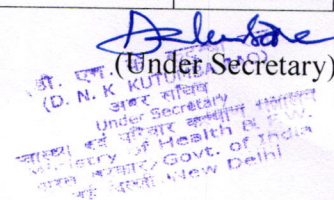 (Under Secretary)
डी. एन.
(D. N. K
अवर सचिव
Under Secretary
स्वास्थ्य एवं परिवार कल्याण मंत्रालय
Ministry of Health & F.W.
भारत सरकार/Govt. of India
नई दिल्ली/New Delhi